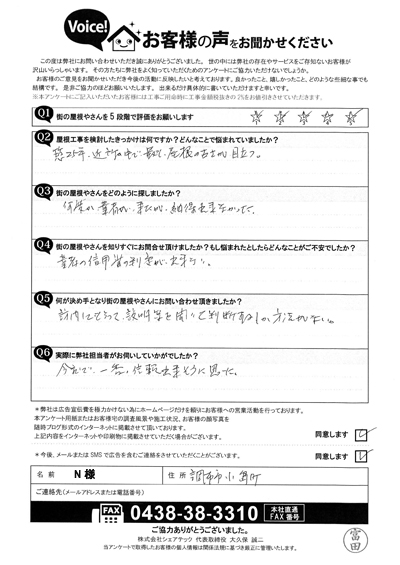 Voice!
お客様の声をお聞かせください
この度は弊社にお問い合わせいただき誠にありがとうございました。 世の中には弊社の存在やサービスをご存知ないお客様が
沢山いらっしゃいます。 その方たちに弊社をよく知っていただくためのアンケートにご協力いただけないでしょうか。
お客様のご意見をお聞かせいただき今後の活動に反映したいと考えております。良かったこと、嬉しかったこと、どのような些細な事でも
結構です。 是非ご協力のほどお願いいたします。 出来るだけ具体的に書いていただけますと幸いです。
※本アンケートにご記入いただいたお客様には工事ご用命時に工事金額税抜きの2%を値引きさせていただきます。
Q1 街の屋根やさんを5段階で評価をお願いします
Q2 屋根工事を検討したきっかけは何ですか？どんなことで悩まれていましたか？
築25年、近所の中で、屋根の古さが目立つ。
Q3 街の屋根やさんをどのように探しましたか？
何度か業者が、来たが、納得出来なかった。
Q4 街の屋根やさんを知りすぐにお問合せ頂けましたか？もし悩まれたとしたらどんなことがご不安でしたか？
業者の信用性の判定が、出来ない。
Q5 何が決め手となり街の屋根やさんにお問い合わせ頂きましたか？
Q6 実際に弊社担当者がお伺いしていかがでしたか？
今までで、一番、信頼出来そうに思った。
＊弊社は広告宣伝費を極力かけない為にホームページだけを頼りにお客様への営業活動を行っております。
本アンケート用紙またはお客様宅の調査風景や施工状況、お客様の顔写真を
随時ブログ形式のインターネットに掲載させて頂いております。
上記内容をインターネットや印刷物に掲載させていただく場合がございます。
同意します
＊今後、メールまたは SMS で広告を含むご連絡をさせていただくことがございます。
同意します
名 前 N 様 住 所 調布市小島町
ご連絡先(メールアドレスまたは電話番号)
FAX 0438-38-3310 本社直通 FAX番号
ご協力ありがとうございました。
株式会社シェアテック 代表取締役 大久保 誠二
当アンケートで取得したお客様の個人情報は関係法規に基づき厳正に管理いたします。
富田